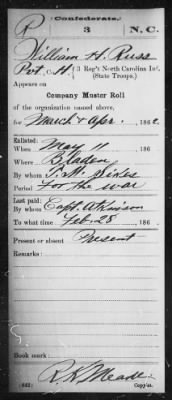 (Confederate.)
R 3 N. C.
William H. Russ
Pvt., Co. H, 3 Reg't North Carolina Inf.
(State Troops.)
Appears on
Company Muster Roll
of the organization named above,
for March & Apr., 1862.
Enlisted:
When May 11, 186
Where Bladen
By whom J. M. Sikes
Period For the war
Last paid:
By whom Capt. Atkinson
To what time Feb. 28, 186
Present or absent Present
Remarks:
Book mark:
(642) R. K. Meade
Copyist.